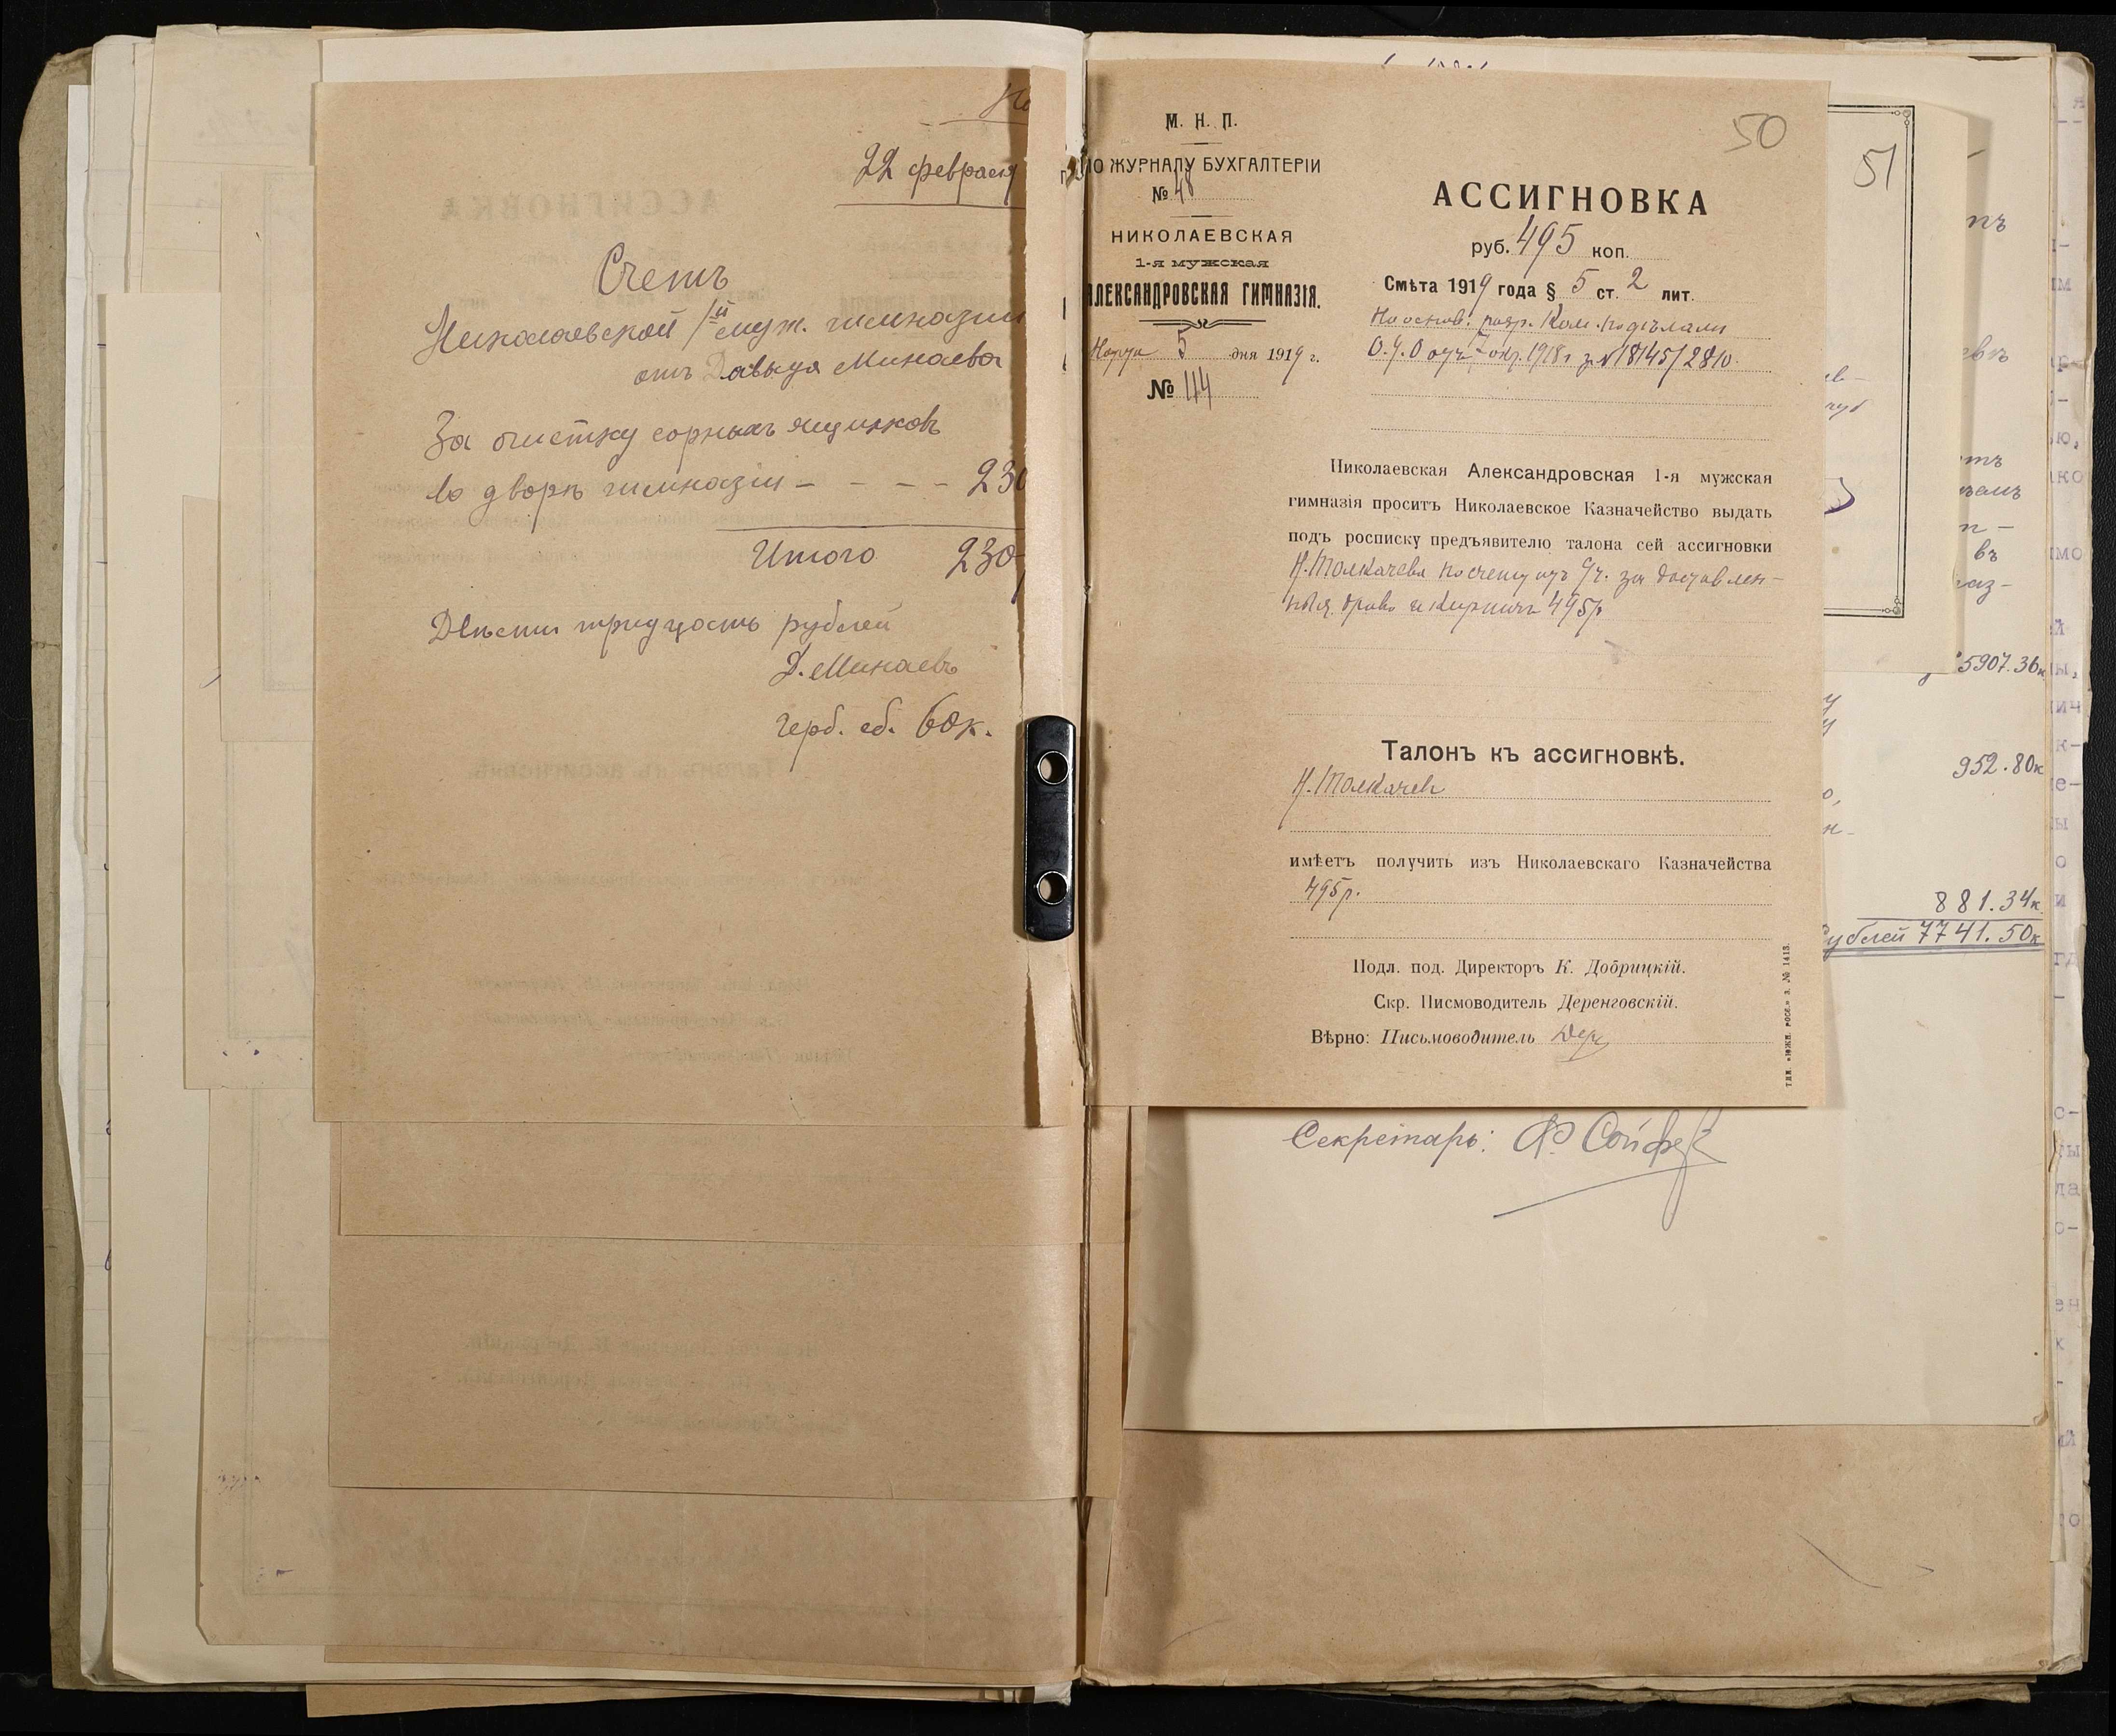 22 февраля
Счетъ
Николаевской 1й муж. гимназии
отъ Давыда Минаева
За очистку сорныхъ ящиковъ
во дворѣ гимназіи - - - - 230
Итого 230
Двѣсти тридцать рублей
Д. Минаевъ
герб. сб. 60к.
М. Н. П.
ПО ЖУРНАЛУ БУХГАЛТЕРІИ
№ 48
НИКОЛАЕВСКАЯ
1-я мужская
АЛЕКСАНДРОВСКАЯ ГИМНАЗІЯ.
Марта 5 дня 1919 г.
№ 44
50
АССИГНОВКА
руб. 495 коп.
Смѣта 1919 года § 5 ст. 2 лит.
На основ. разр. Ком. по дѣлами
О.У.О отъ 7 окт. 1918 г. з № 18145/2810.
Николаевская Александровская 1-я мужская
гимназія проситъ Николаевское Казначейство выдать
подъ росписку предъявителю талона сей ассигновки
Н. Толкачева по счету отъ 9ч. за доставлен-
ныя дрова и кирпичъ 495р.
Талонъ къ ассигновкѣ.
Н. Толкачев
имѣетъ получить изъ Николаевскаго Казначейства
495р.
Подл. под. Директоръ К. Добрицкій.
Скр. Письмоводитель Деренговскій.
Вѣрно: Письмоводитель Дер
ТИП. «ЮЖН. РОСС.» З. № 1413.
51
5907.36к
952.80к
881.34к
рублей 7741.50к
Секретарь: Ф.